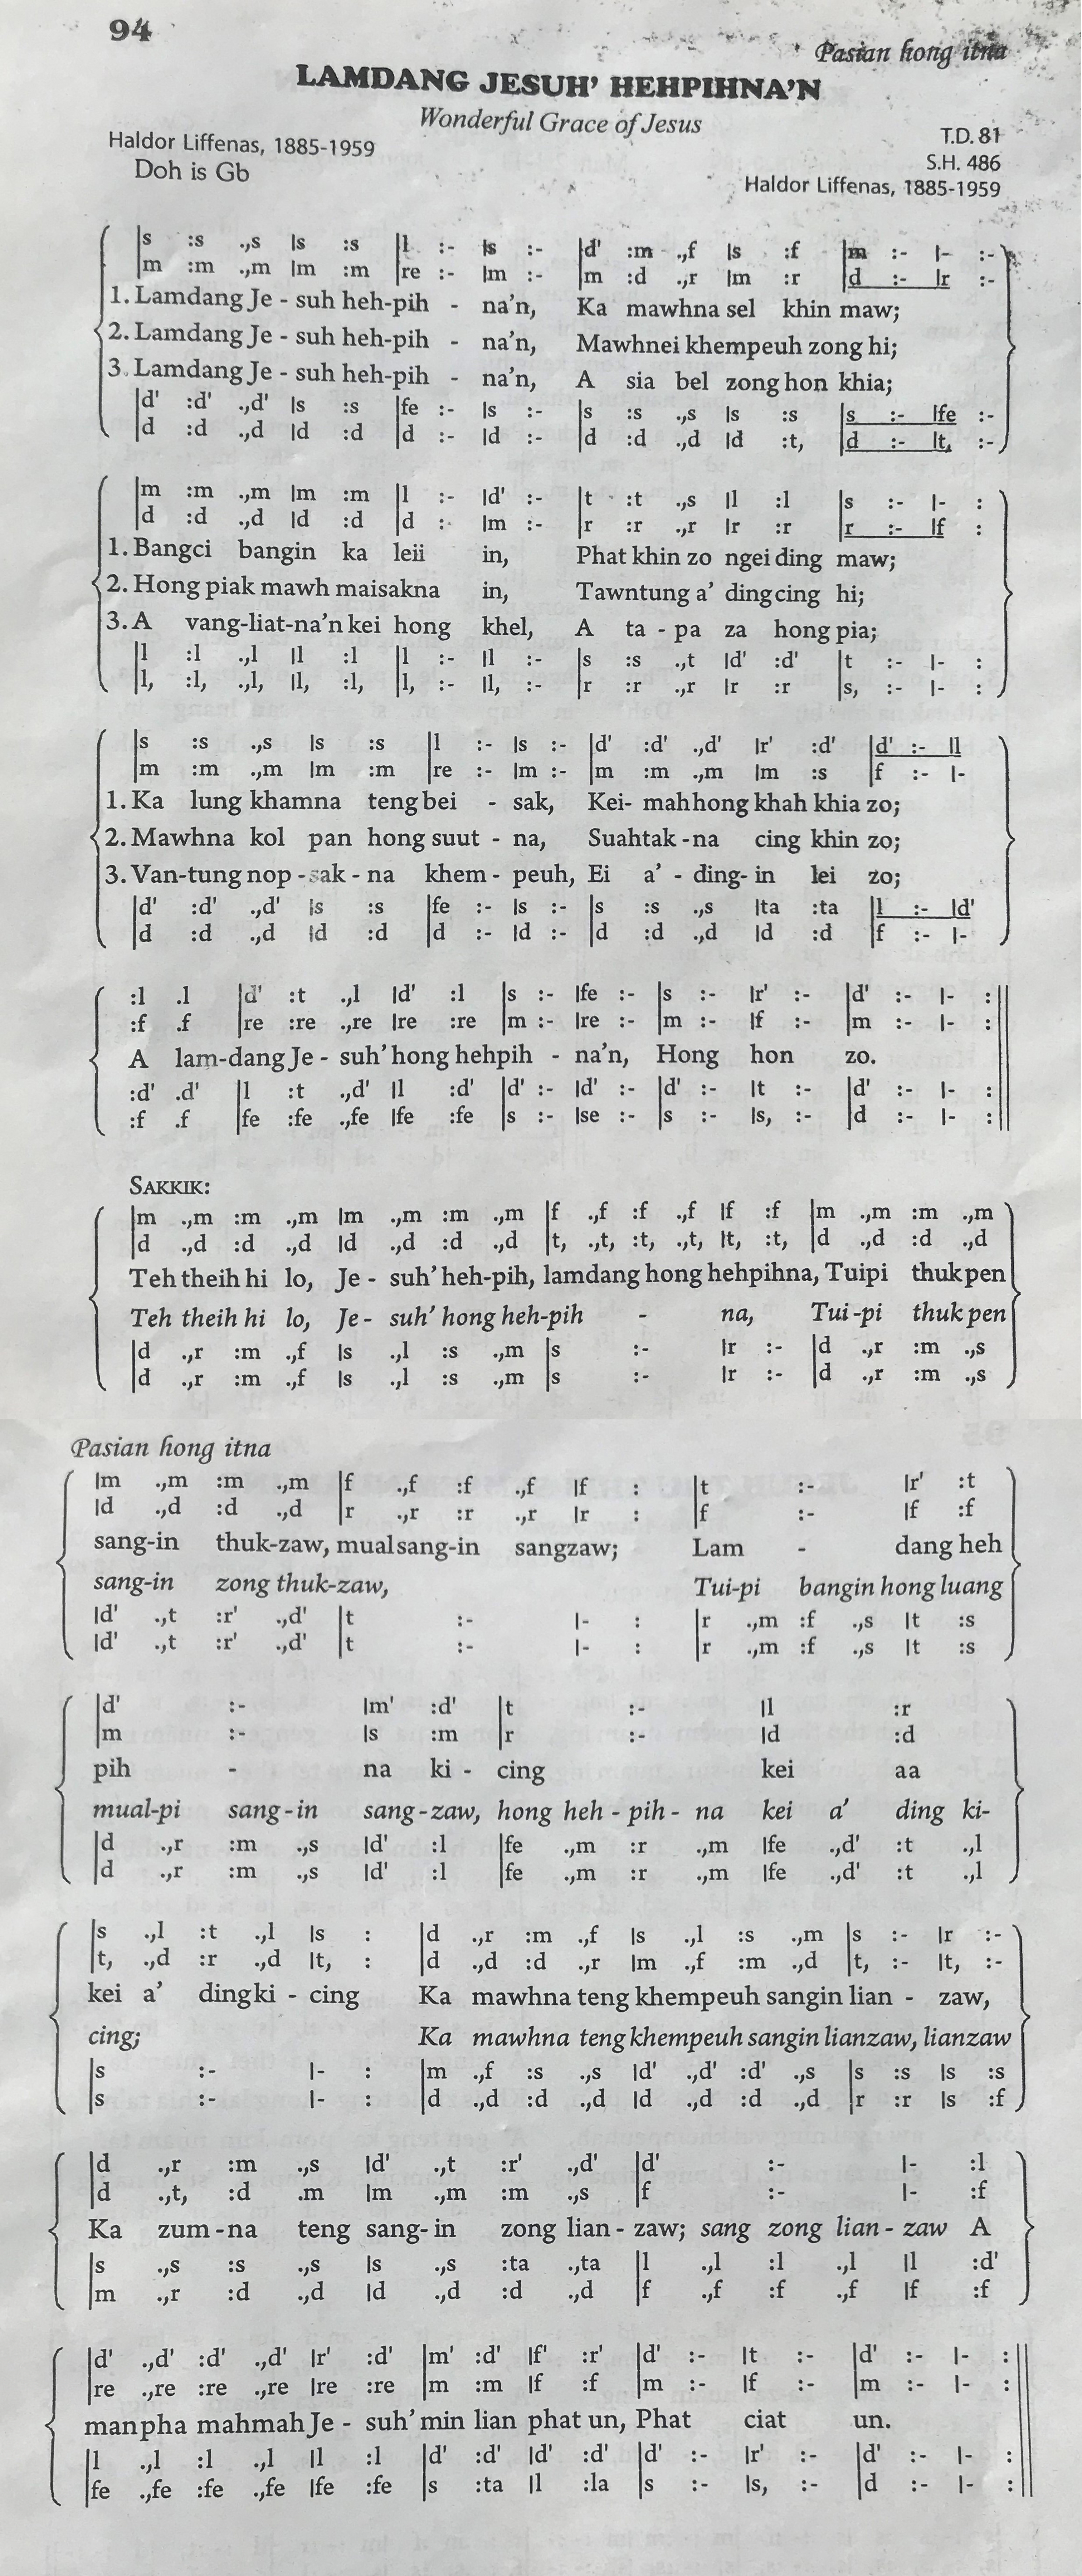 94
Pasian hong itna
LAMDANG JESUH' HEHPIHNA'N
Wonderful Grace of Jesus
Haldor Liffenas, 1885-1959
T.D. 81
Doh is Gb
S.H. 486
Haldor Liffenas, 1885-1959
|s :s .,s |s :s |l :- |s :- |d' :m .,f |s :f |m :- |- :-
|m :m .,m |m :m |re :- |m :- |m :d .,r |m :r |d :- |r :-
1. Lamdang Je - suh heh-pih - na'n, Ka mawhna sel khin maw;
2. Lamdang Je - suh heh-pih - na'n, Mawhnei khempeuh zong hi;
3. Lamdang Je - suh heh-pih - na'n, A sia bel zong hon khia;
|d' :d' .,d' |s :s |fe :- |s :- |s :s .,s |s :s |s :- |fe :-
|d :d .,d |d :d |d :- |d :- |d :d .,d |d :t, |d :- |t, :-
|m :m .,m |m :m |l :- |d' :- |t :t .,s |l :l |s :- |- :
|d :d .,d |d :d |d :- |m :- |r :r .,r |r :r |r :- |f :
1. Bangci bangin ka leii in, Phat khin zo ngei ding maw;
2. Hong piak mawh maisakna in, Tawntung a' dingcing hi;
3. A vang-liat-na'n kei hong khel, A ta - pa za hong pia;
|l :l .,l |l :l |l :- |l :- |s :s .,t |d' :d' |t :- |- :
|l, :l, .,l, |l, :l, |l, :- |l, :- |r :r .,r |r :r |s, :- |- :
|s :s .,s |s :s |l :- |s :- |d' :d' .,d' |r' :d' |d' :- |l
|m :m .,m |m :m |re :- |m :- |m :m .,m |m :s |f :- |-
1. Ka lung khamna teng bei - sak, Kei- mah hong khah khia zo;
2. Mawhna kol pan hong suut - na, Suahtak -na cing khin zo;
3. Van-tung nop -sak - na khem - peuh, Ei a' - ding- in lei zo;
|d' :d' .,d' |s :s |fe :- |s :- |s :s .,s |ta :ta |l :- |d'
|d :d .,d |d :d |d :- |d :- |d :d .,d |d :d |f :- |-
:l .l |d' :t .,l |d' :l |s :- |fe :- |s :- |r' :- |d' :- |- :
:f .f |re :re .,re |re :re |m :- |re :- |m :- |f :- |m :- |- :
A lam-dang Je - suh' hong hehpih - na'n, Hong hon zo.
:d' .d' |l :t .,d' |l :d' |d' :- |d' :- |d' :- |t :- |d' :- |- :
:f .f |fe :fe .,fe |fe :fe |s :- |se :- |s :- |s, :- |d :- |- :
SAKKIK:
|m .,m :m .,m |m .,m :m .,m |f .,f :f .,f |f :f |m .,m :m .,m
|d .,d :d .,d |d .,d :d .,d |t, .,t, :t, .,t, |t, :t, |d .,d :d .,d
Teh theih hi lo, Je - suh' heh-pih, lamdang hong hehpihna, Tuipi thuk pen
Teh theih hi lo, Je - suh' hong heh-pih - na, Tui-pi thuk pen
|d .,r :m .,f |s .,l :s .,m |s :- |r :- |d .,r :m .,s
|d .,r :m .,f |s .,l :s .,m |s :- |r :- |d .,r :m .,s
Pasian hong itna
|m .,m :m .,m |f .,f :f .,f |f : |t :- |r' :t
|d .,d :d .,d |r .,r :r .,r |r : |f :- |f :f
sang-in thuk-zaw, mual sang-in sangzaw; Lam - dang heh
sang-in zong thuk-zaw, Tui-pi bangin hong luang
|d' .,t :r' .,d' |t :- |- : |r .,m :f .,s |t :s
|d' .,t :r' .,d' |t :- |- : |r .,m :f .,s |t :s
|d' :- |m' :d' |t :- |l :r
|m :- |s :m |r :- |d :d
pih - na ki - cing kei aa
mual-pi sang - in sang-zaw, hong heh - pih - na kei a' ding ki-
|d .,r :m .,s |d' :l |fe .,m :r .,m |fe .,d' :t .,l
|d .,r :m .,s |d' :l |fe .,m :r .,m |fe .,d' :t .,l
|s .,l :t .,l |s : |d .,r :m .,f |s .,l :s .,m |s :- |r :-
|t, .,d :r .,d |t, : |d .,d :d .,r |m .,f :m .,d |t, :- |t, :-
kei a' dingki - cing Ka mawhna teng khempeuh sangin lian - zaw,
cing; Ka mawhna teng khempeuh sangin lianzaw, lianzaw
|s :- |- : |m .,f :s .,s |d' .,d' :d' .,s |s :s |s :s
|s :- |- : |d .,d :d .,d |d .,d :d .,d |r :r |s :f
|d .,r :m .,s |d' .,t :r' .,d' |d' :- |- :l
|d .,t, :d .m |m .,m :m .,s |f :- |- :f
Ka zum -na teng sang- in zong lian - zaw; sang zong lian - zaw A
|s .,s :s .,s |s .,s :ta .,ta |l .,l :l .,l |l :d'
|m .,r :d .,d |d .,d :d .,d |f .,f :f .,f |f :f
|d' .,d' :d' .,d' |r' :d' |m' :d' |f' :r' |d' :- |t :- |d' :- |- :
|re .,re :re .,re |re :re |m :m |f :f |m :- |f :- |m :- |- :
manpha mahmah Je - suh' min lian phat un, Phat ciat un.
|l .,l :l .,l |l :l |d' :d' |d' :d' |d' :- |r' :- |d' :- |- :
|fe .,fe :fe .,fe |fe :fe |s :ta |l :la |s :- |s, :- |d :- |- :